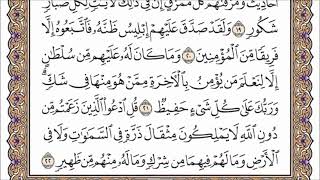 أَحَادِيثَ وَمَزَّقْنَٰهُمْ كُلَّ مُمَزَّقٍ إِنَّ فِي ذَٰلِكَ لَأٓيَٰتٍ لِّكُلِّ صَبَّارٍ
شَكُورٍ ١٩ وَلَقَدْ صَدَّقَ عَلَيْهِمْ إِبْلِيسُ ظَنَّهُۥ فَٱتَّبَعُوهُ إِلَّا
فَرِيقًا مِّنَ ٱلْمُؤْمِنِينَ ٢٠ وَمَا كَانَ لَهُۥ عَلَيْهِم مِّن سُلْطَٰنٍ
إِلَّا لِنَعْلَمَ مَن يُؤْمِنُ بِٱلْأٓخِرَةِ مِمَّنْ هُوَ مِنْهَا فِي شَكٍّ
وَرَبُّكَ عَلَىٰ كُلِّ شَيْءٍ حَفِيظٌ ٢١ قُلِ ٱدْعُوا۟ ٱلَّذِينَ زَعَمْتُم مِّن
دُونِ ٱللَّهِ لَا يَمْلِكُونَ مِثْقَالَ ذَرَّةٍ فِي ٱلسَّمَٰوَٰتِ وَلَا فِي
ٱلْأَرْضِ وَمَا لَهُمْ فِيهِمَا مِن شِرْكٍ وَمَا لَهُۥ مِنْهُم مِّن ظَهِيرٍ ٢٢